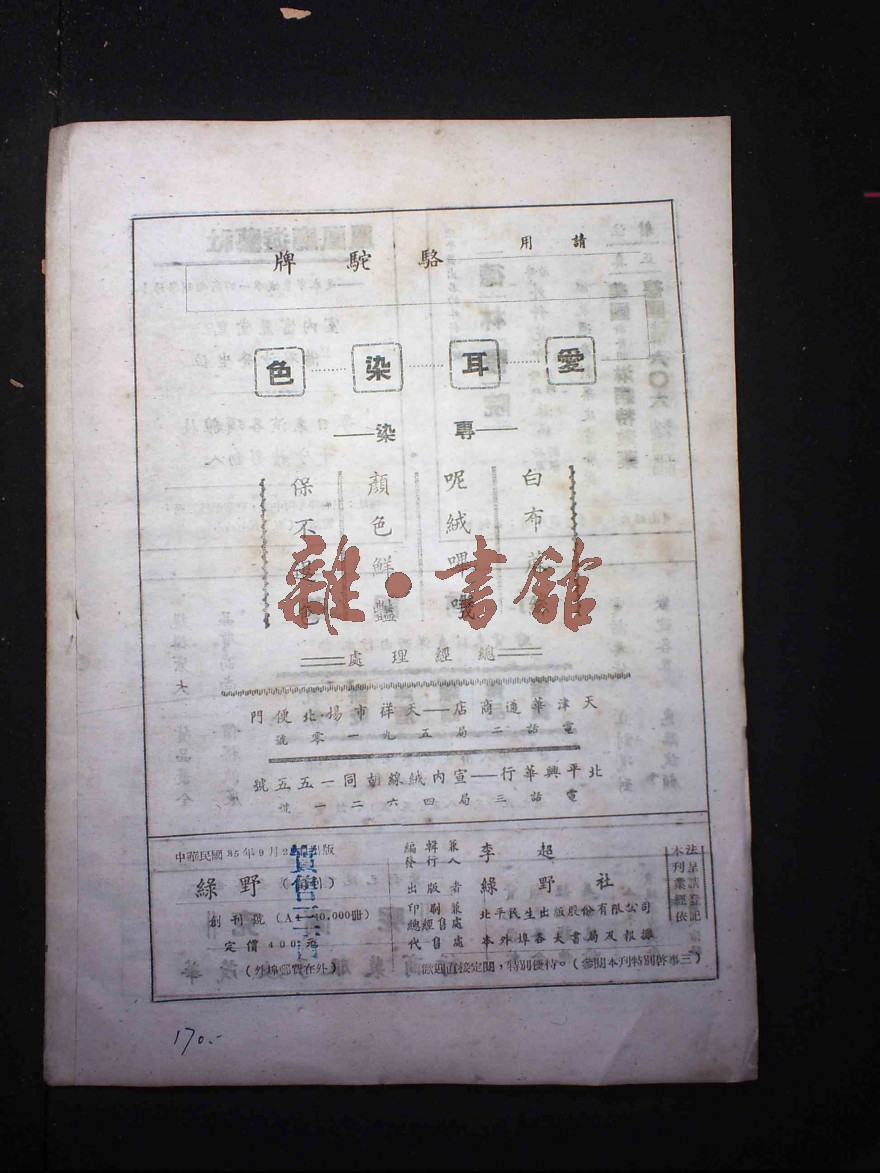 請用
駱駝牌
愛耳染色
專染
白布
呢絨嗶嘰
顏色鮮豔
保不色
總經理處
天津華通商店——天祥市場北便門
電話二局五九一零號
北平興華行——宣內絨線胡同一五五號
電話三局四六二一號
本刊業經依法呈請登記
編輯兼發行人 李超
出版者 綠野社
印刷兼總經售處 北平民生出版股份有限公司
代售處 本外埠各大書局及報攤
歡迎直接定閱，特別優待。(參閱本刊特別啓事三)
中華民國35年9月2 出版
綠野(月刊)
創刊號(A1—10,000冊)
定價400元
(外埠郵費在外)
實售三
雜·書館
170.-